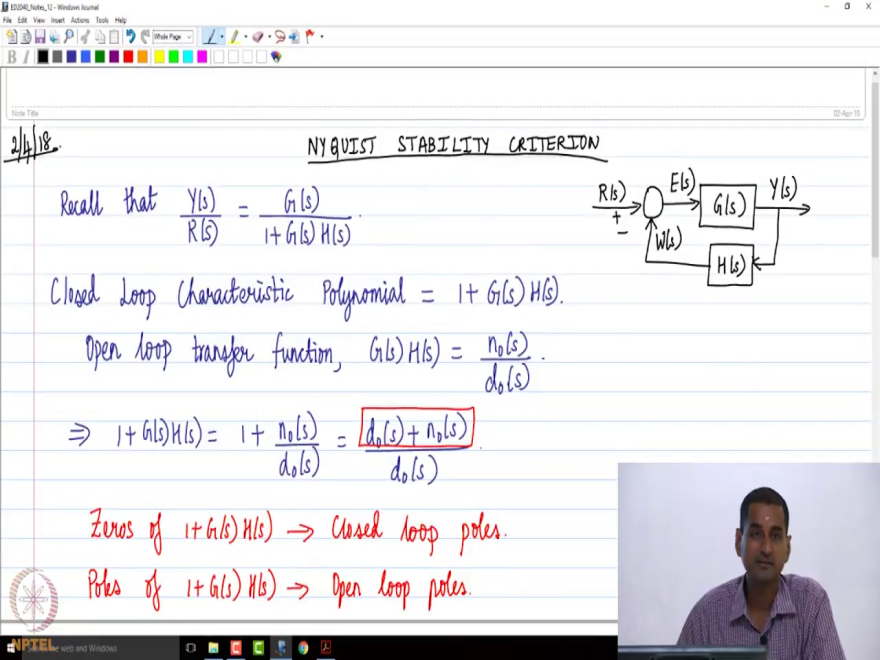 ED2040_Notes_12 - Windows Journal
File Edit View Insert Actions Tools Help
Whole Page
B I
Note Title
02-Apr-18
2/4/18.
NYQUIST STABILITY CRITERION
R(s) + - E(s) G(s) Y(s)
W(s) H(s)
Recall that Y(s)/R(s) = G(s)/(1+G(s)H(s)).
Closed Loop Characteristic Polynomial = 1+G(s)H(s).
Open loop transfer function, G(s)H(s) = n₀(s)/d₀(s).
⇒ 1+G(s)H(s) = 1 + n₀(s)/d₀(s) = (d₀(s)+n₀(s))/d₀(s).
Zeros of 1+G(s)H(s) → Closed loop poles.
Poles of 1+G(s)H(s) → Open loop poles.
NPTEL
the web and Windows